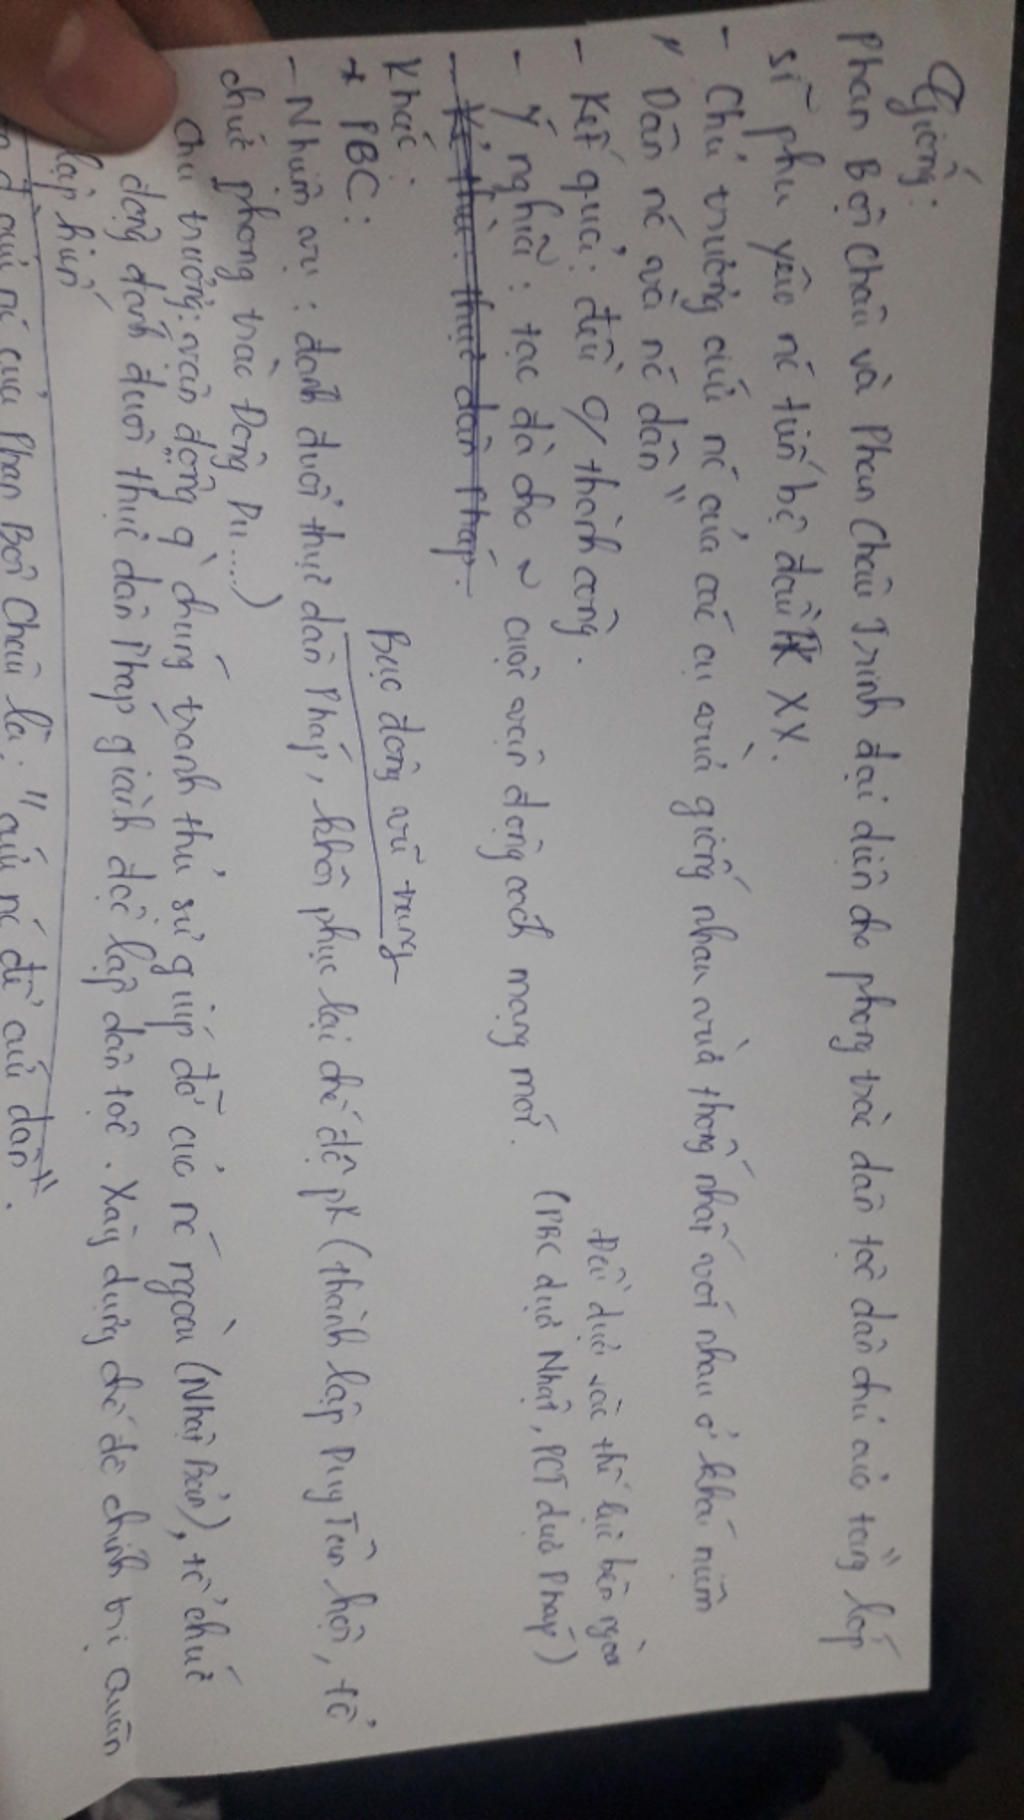 Giống:
Phan Bội Châu và Phan Châu Trinh đại diện cho phong trào dân tộc dân chủ của tầng lớp
sĩ phu yêu nc tiến bộ đầu TK XX.
- Chủ trương cứu nc của các cụ vừa giống nhau vừa thống nhất với nhau ở khái niệm
" Dân nc và nc dân "
Đều dựa vào thế lực bên ngoài
- Kết quả: đều 0/ thành công.
(PBC dựa Nhật, PCT dựa Pháp)
- Ý nghĩa: tạc đà cho ~ cuộc vận động cách mạng mới.
- Kẻ thù: thực dân Pháp.
Khác:
Bạc động vũ trang
* PBC:
- Nhiệm vụ: đánh đuổi thực dân Pháp, khôi phục lại chế độ pk (thành lập Duy Tân hội, tổ
chức phong trào Đông Du....)
Chủ trương: vận động q chúng tranh thủ sự giúp đỡ của nc ngoài (Nhật Bản), tổ chức
động đánh đuổi thực dân Pháp giành độc lập dân tộc. Xây dựng chế độ chính trị quân
lập hiến
cứu nc của Phan Bội Châu là: "cứu nc để cứu dân".